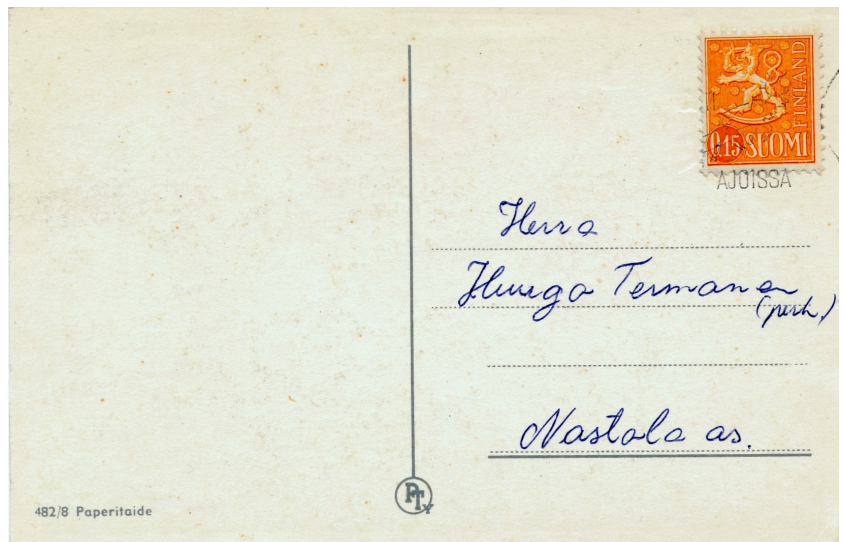 FINLAND
0,15 SUOMI
AJOISSA
Herra
Huugo Termanen
(perh.)
Nastola as.
PTy
482/8 Paperitaide